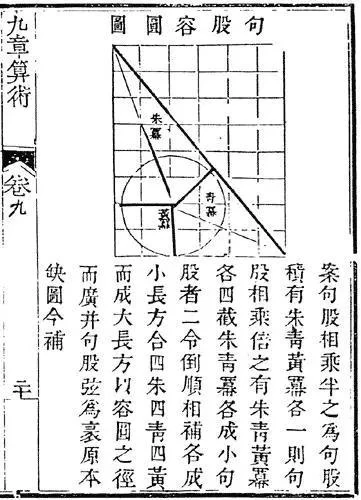 句股容圓圖
朱冪
青冪
黃冪
案句股相乘半之爲句股
積有朱青黃冪各一則句
股相乘倍之有朱青黃冪
各四截朱青冪各成小句
股者二令倒順相補各成
小長方合四朱四青四黃
而成大長方以容圓之徑
而廣并句股弦爲袤原本
缺圖今補
九章算術
卷九